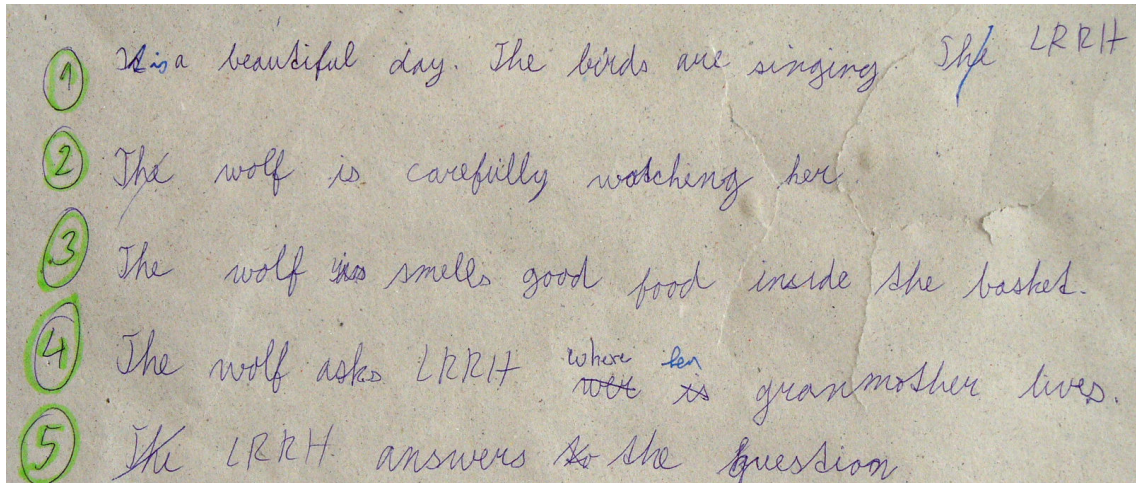 1 It is a beautiful day. The birds are singing. The LRRH
2 The wolf is carefully watcheng her.
3 The wolf smells good food inside the basket.
4 The wolf asks LRRH where her granmother lives.
5 The LRRH answers to the question